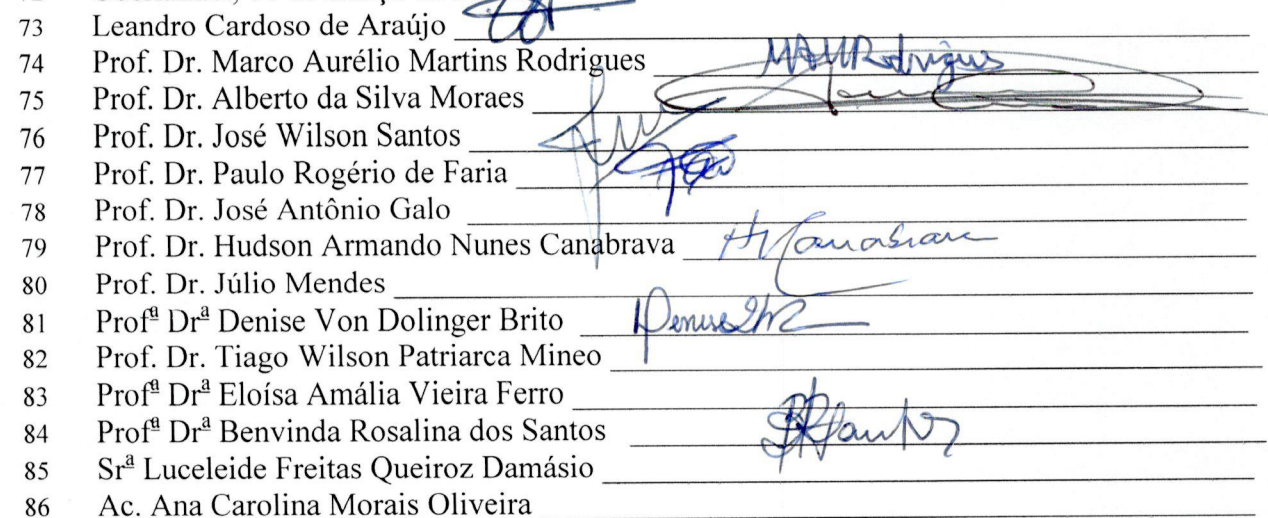 73 Leandro Cardoso de Araújo
74 Prof. Dr. Marco Aurélio Martins Rodrigues MAMRodrigues
75 Prof. Dr. Alberto da Silva Moraes
76 Prof. Dr. José Wilson Santos
77 Prof. Dr. Paulo Rogério de Faria
78 Prof. Dr. José Antônio Galo
79 Prof. Dr. Hudson Armando Nunes Canabrava
80 Prof. Dr. Júlio Mendes
81 Profª Drª Denise Von Dolinger Brito Denise
82 Prof. Dr. Tiago Wilson Patriarca Mineo
83 Profª Drª Eloísa Amália Vieira Ferro
84 Profª Drª Benvinda Rosalina dos Santos
85 Srª Luceleide Freitas Queiroz Damásio
86 Ac. Ana Carolina Morais Oliveira